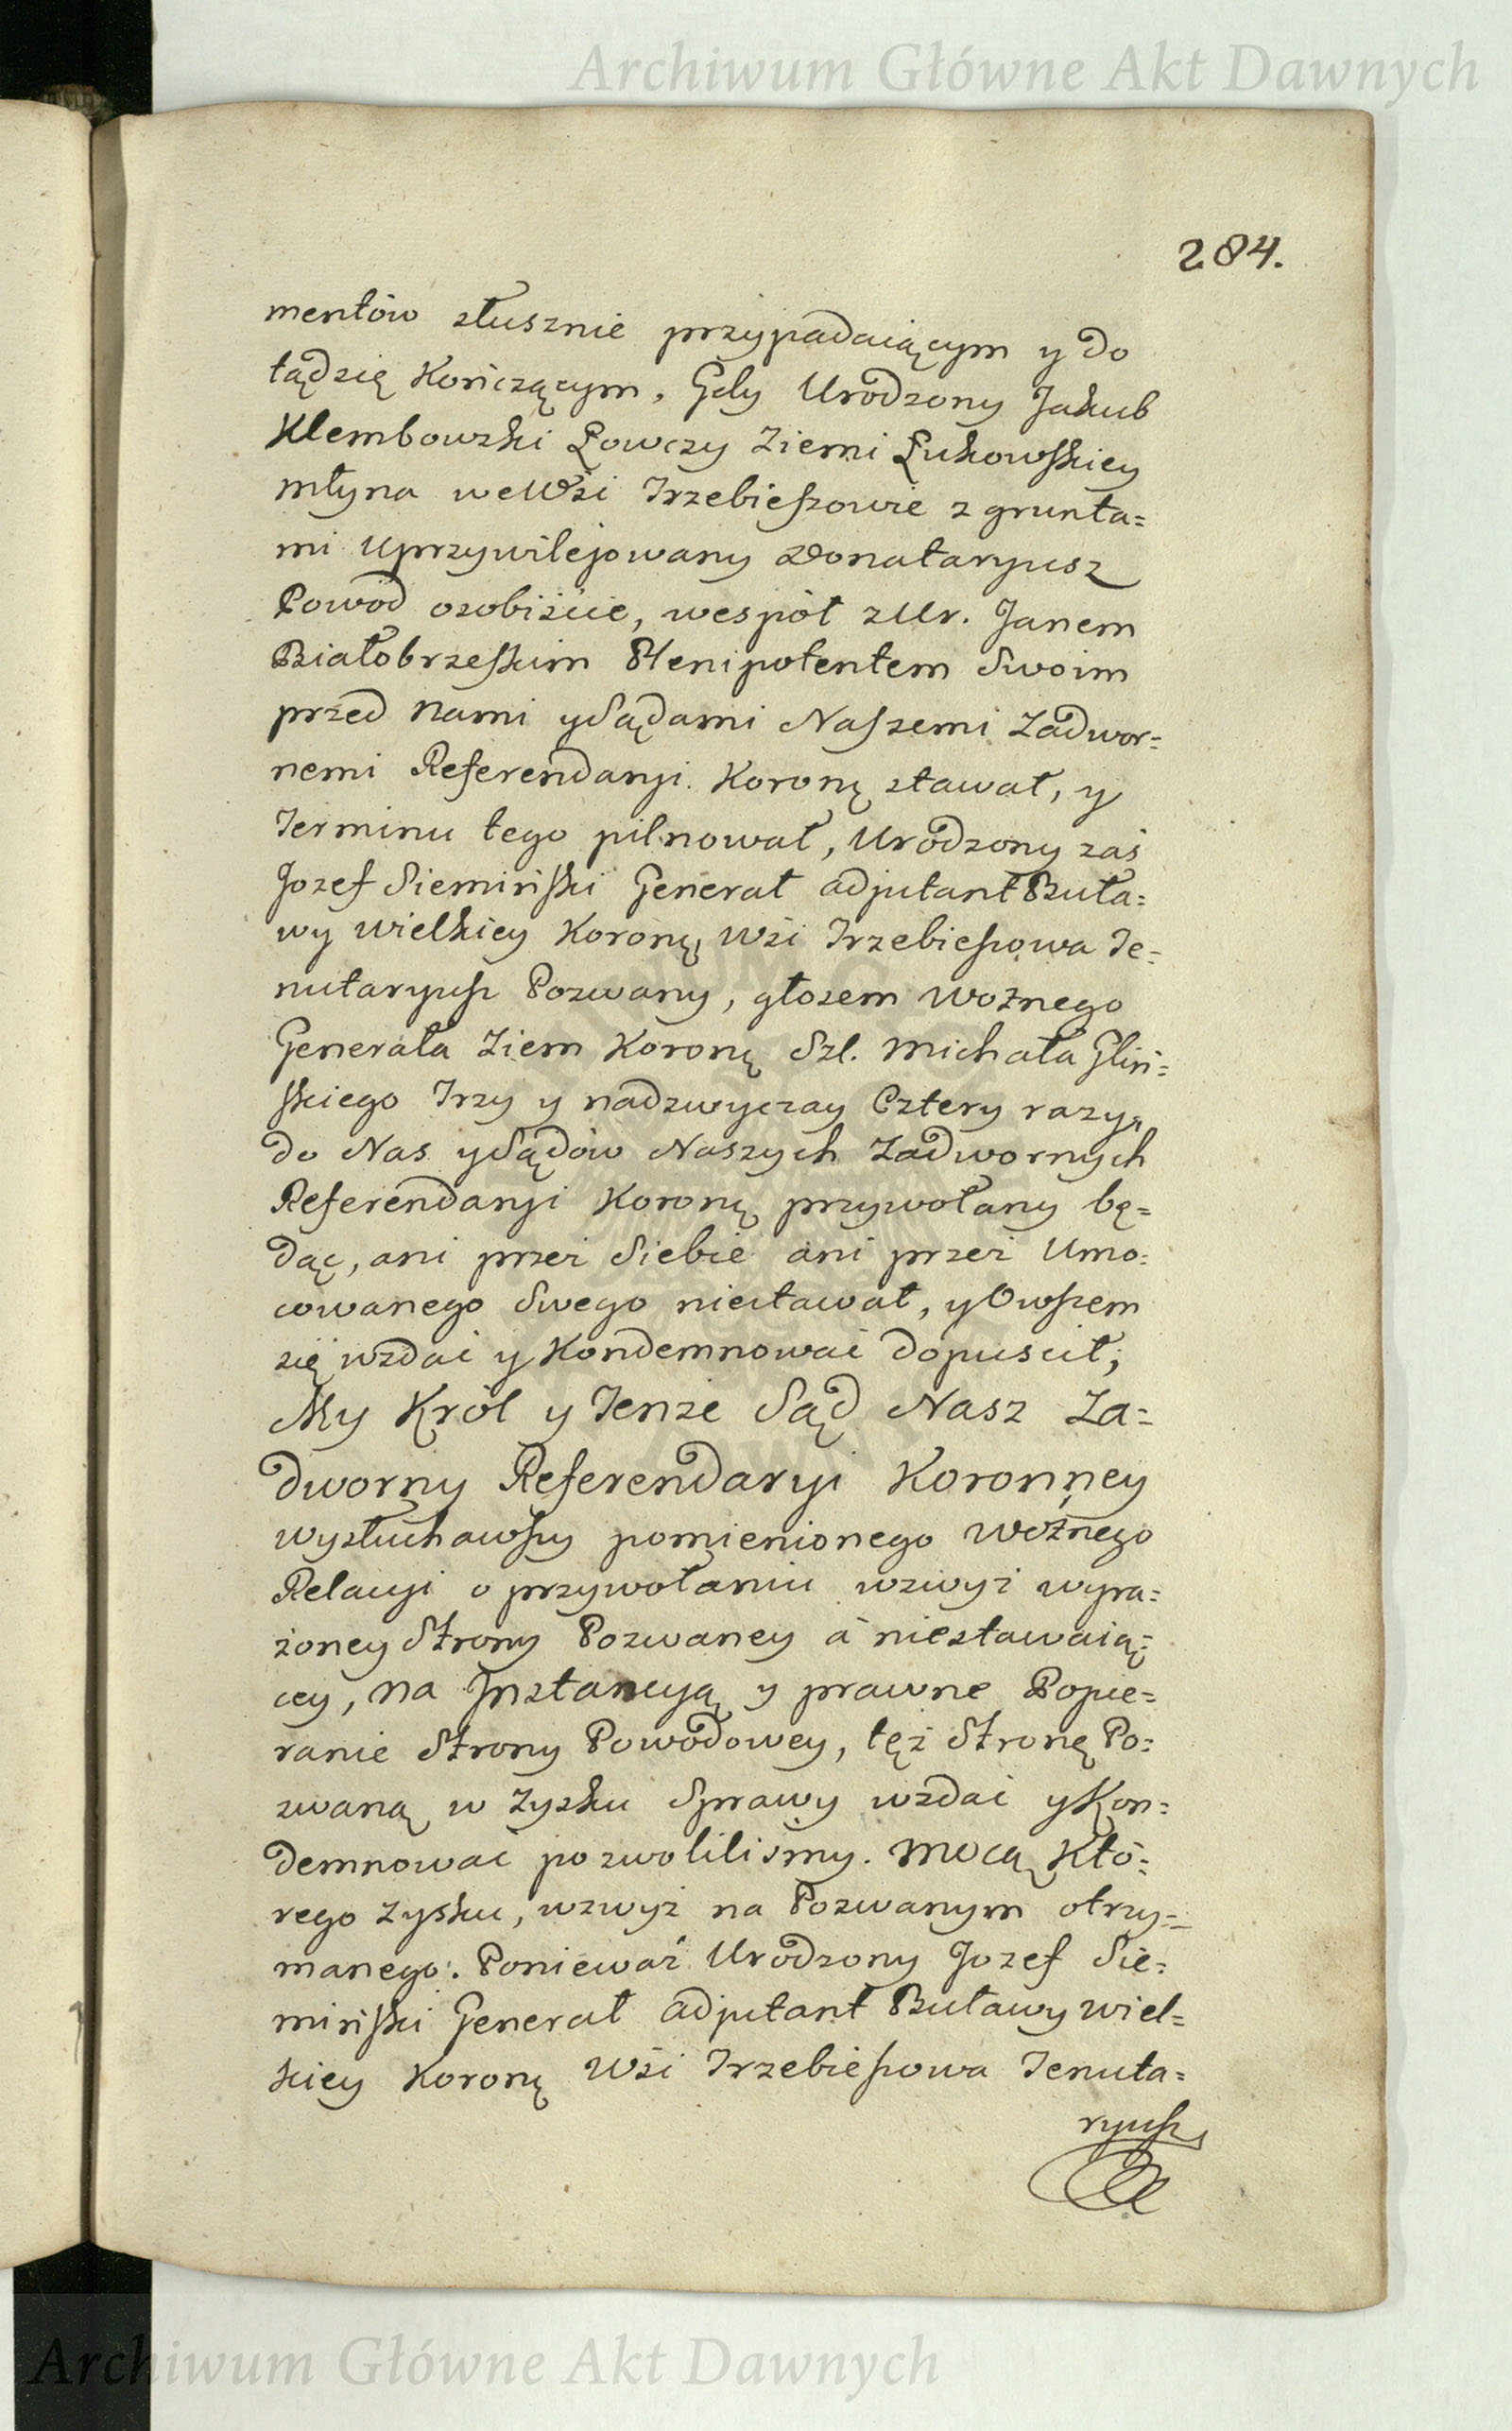 Archiwum Główne Akt Dawnych
284.
mentów słusznie przypadaiącym y do
tądzię Kończącym, Gdy Urodzony Jakub
Klembowski Łowczy Ziemi Łukowskiey
młyna we Wsi Trzebieszowie z grunta=
mi Uprzywilejowany Donataryusz
Powod osobiście, wespół z Ur. Janem
Białobrzeskim Plenipotentem Swoim
przed Nami y Sądami Naszemi Zadwor=
nemi Referendaryi Koronų stawał, y
Terminu tego pilnował, Urodzony zaś
Jozef Siemiński Generał Adjutant Buła=
wy Wielkiey Koronų, Wsi Trzebieszowa Te=
nutaryusz Pozwany, głosem Woźnego
Generała Ziem Koronų Szl. Michała Gliń=
skiego Trzy y nadzwyczay Cztery razy,
do Nas y Sądów Naszych Zadwornych
Referendaryi Koronų przywołany bę=
dąc, ani przez Siebie ani przez Umo=
cowanego Swego niestawał, y Owszem
się wzdać y Kondemnować dopuścił;
My Król y Tenże Sąd Nasz Za=
dworny Referendaryi Koronney
wysłuchawszy pomienionego Woźnego
Relacyi o przywołaniu wzwyż wyra=
żoney Strony Pozwaney a niestawaią=
cey, na Jnstancyą y prawne Popie=
ranie Strony Powodowey, tęż Stronę Po=
zwaną w Zysku Sprawy wzdać y Kon=
demnować pozwoliliśmy. Mocą Któ=
rego Zysku, wzwyż na Pozwanym otrzy=
manego. Ponieważ Urodzony Jozef Sie=
miński Generał Adjutant Buławy Wiel=
kiey Koronų Wsi Trzebieszowa Tenuta=
ryusz
Archiwum Główne Akt Dawnych